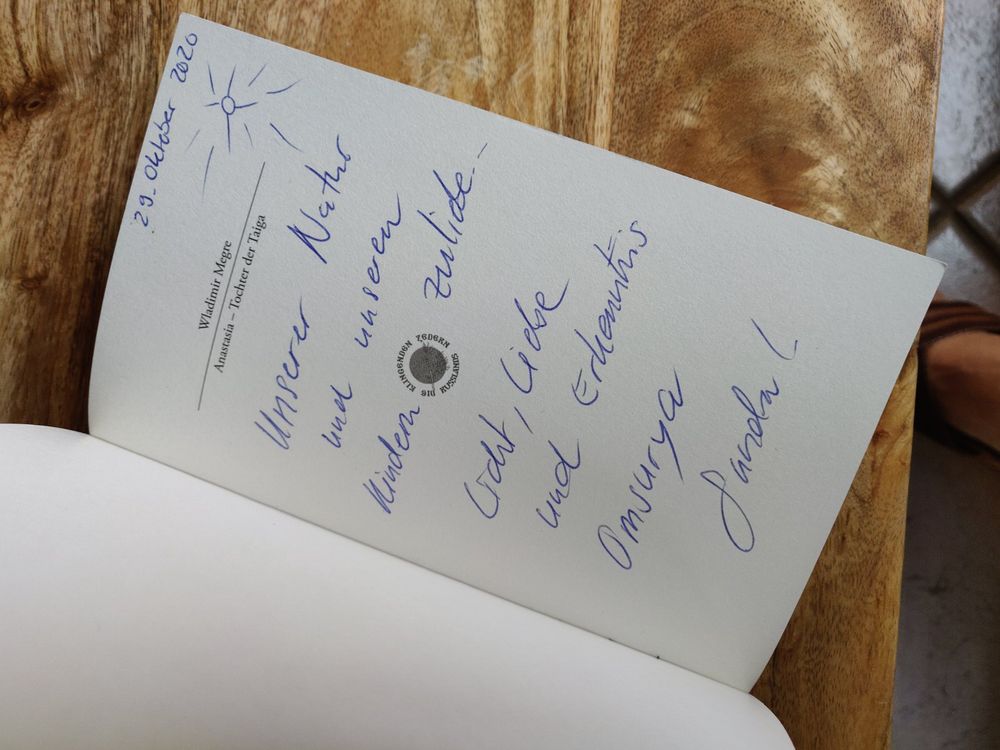 29. Oktober 2020
Wladimir Megre
Anastasia – Tochter der Taiga
Unserer Natur
und unseren
Kindern zulide..
DIE KLINGENDEN ZEDERN RUSSLANDS
Licht, Liebe
und Erkenntnis
Omsurya